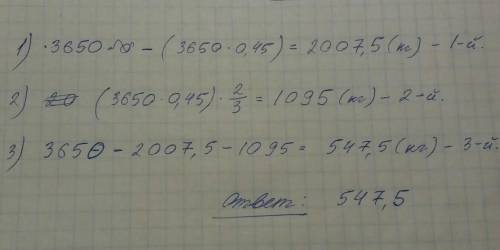 1) 3650 - (3650·0,45) = 2007,5 (кг) - 1-й.
2) (3650·0,45)·2/3 = 1095 (кг) - 2-й.
3) 3650 - 2007,5 - 1095 = 547,5 (кг) - 3-й.
Ответ: 547,5